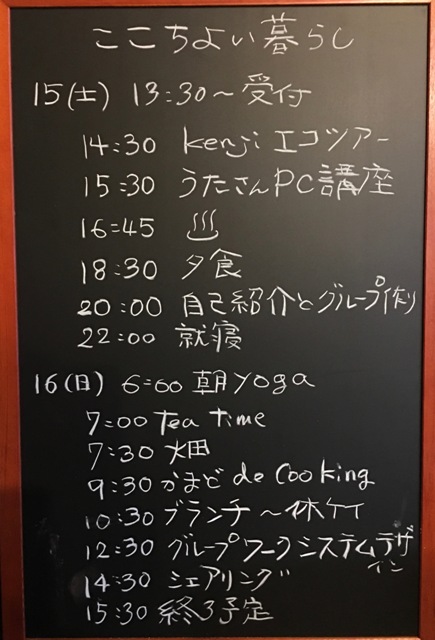 ここちよい暮らし
15(土) 13:30～受付
14:30 kenjiエコツアー
15:30 うたさんPC講座
16:45 ♨
18:30 夕食
20:00 自己紹介とグループ作り
22:00 就寝
16(日) 6:00 朝yoga
7:00 tea time
7:30 畑
9:30 かまど de Cooking
10:30 ブランチ～休ケイ
12:30 グループワークシステムデザ
イン
14:30 シェアリング
15:30 終了予定